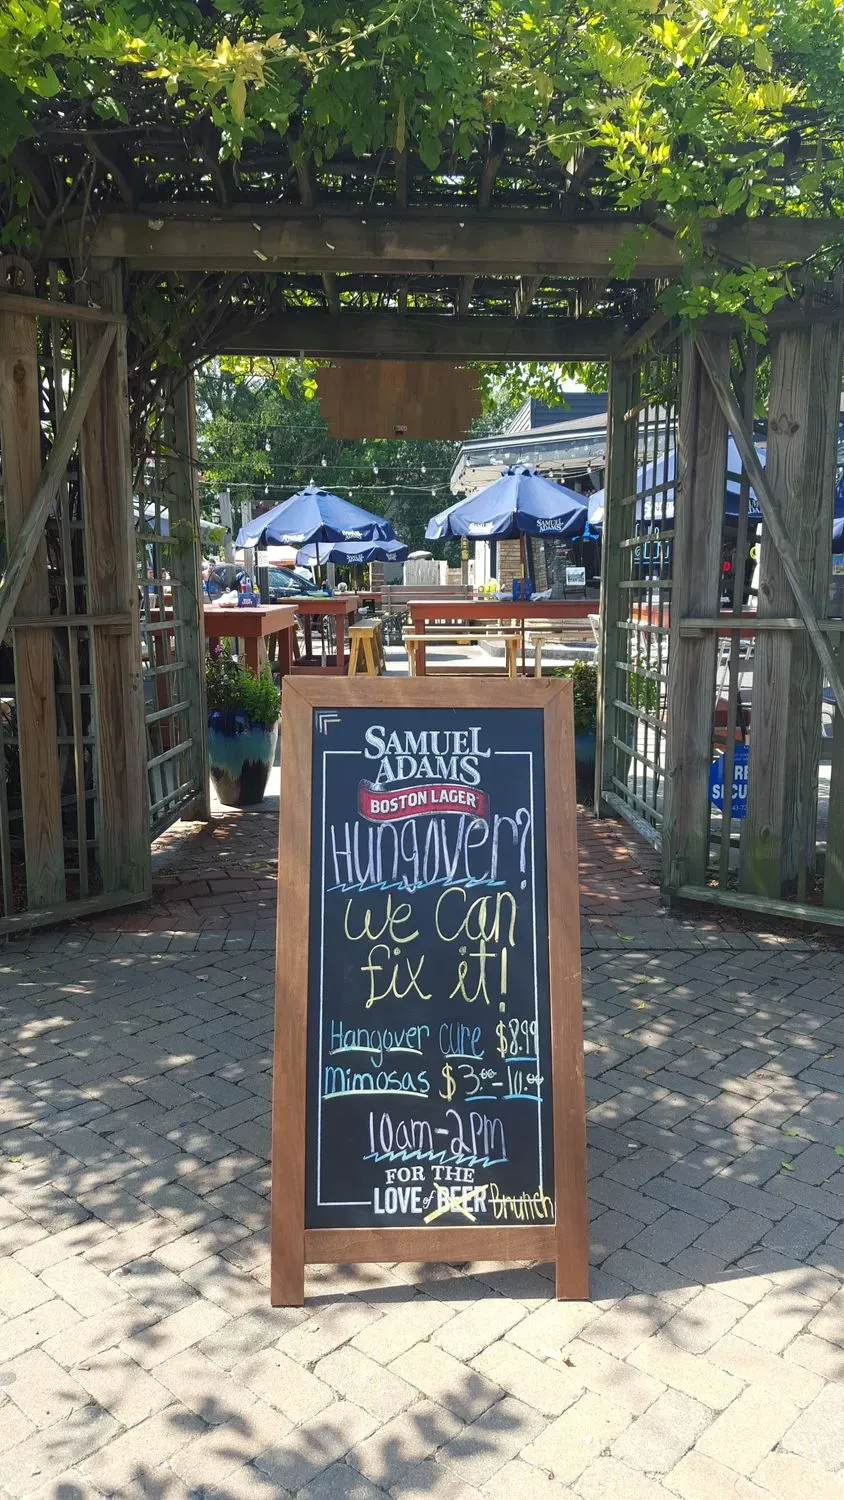 SAMUEL
ADAMS
SAMUEL
ADAMS
SAMUEL
ADAMS
BOSTON LAGER
Hungover?
We Can
fix it!
Hangover cure $8.99
mimosas $3.00-10.00
10am-2pm
FOR THE
LOVE of BEER Brunch
RE
SECU